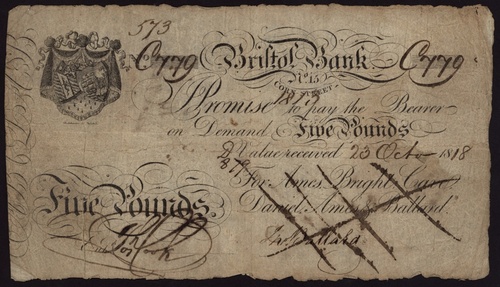 573
C779 Bristol Bank C779
No 15
CORN STREET
I Promise to pay the Bearer
on Demand Five Pounds
Value received 23 Octo 1818
For Ames, Bright, Cave
Five Pounds. Daniel, Ames & Ballard
Jno Ballard